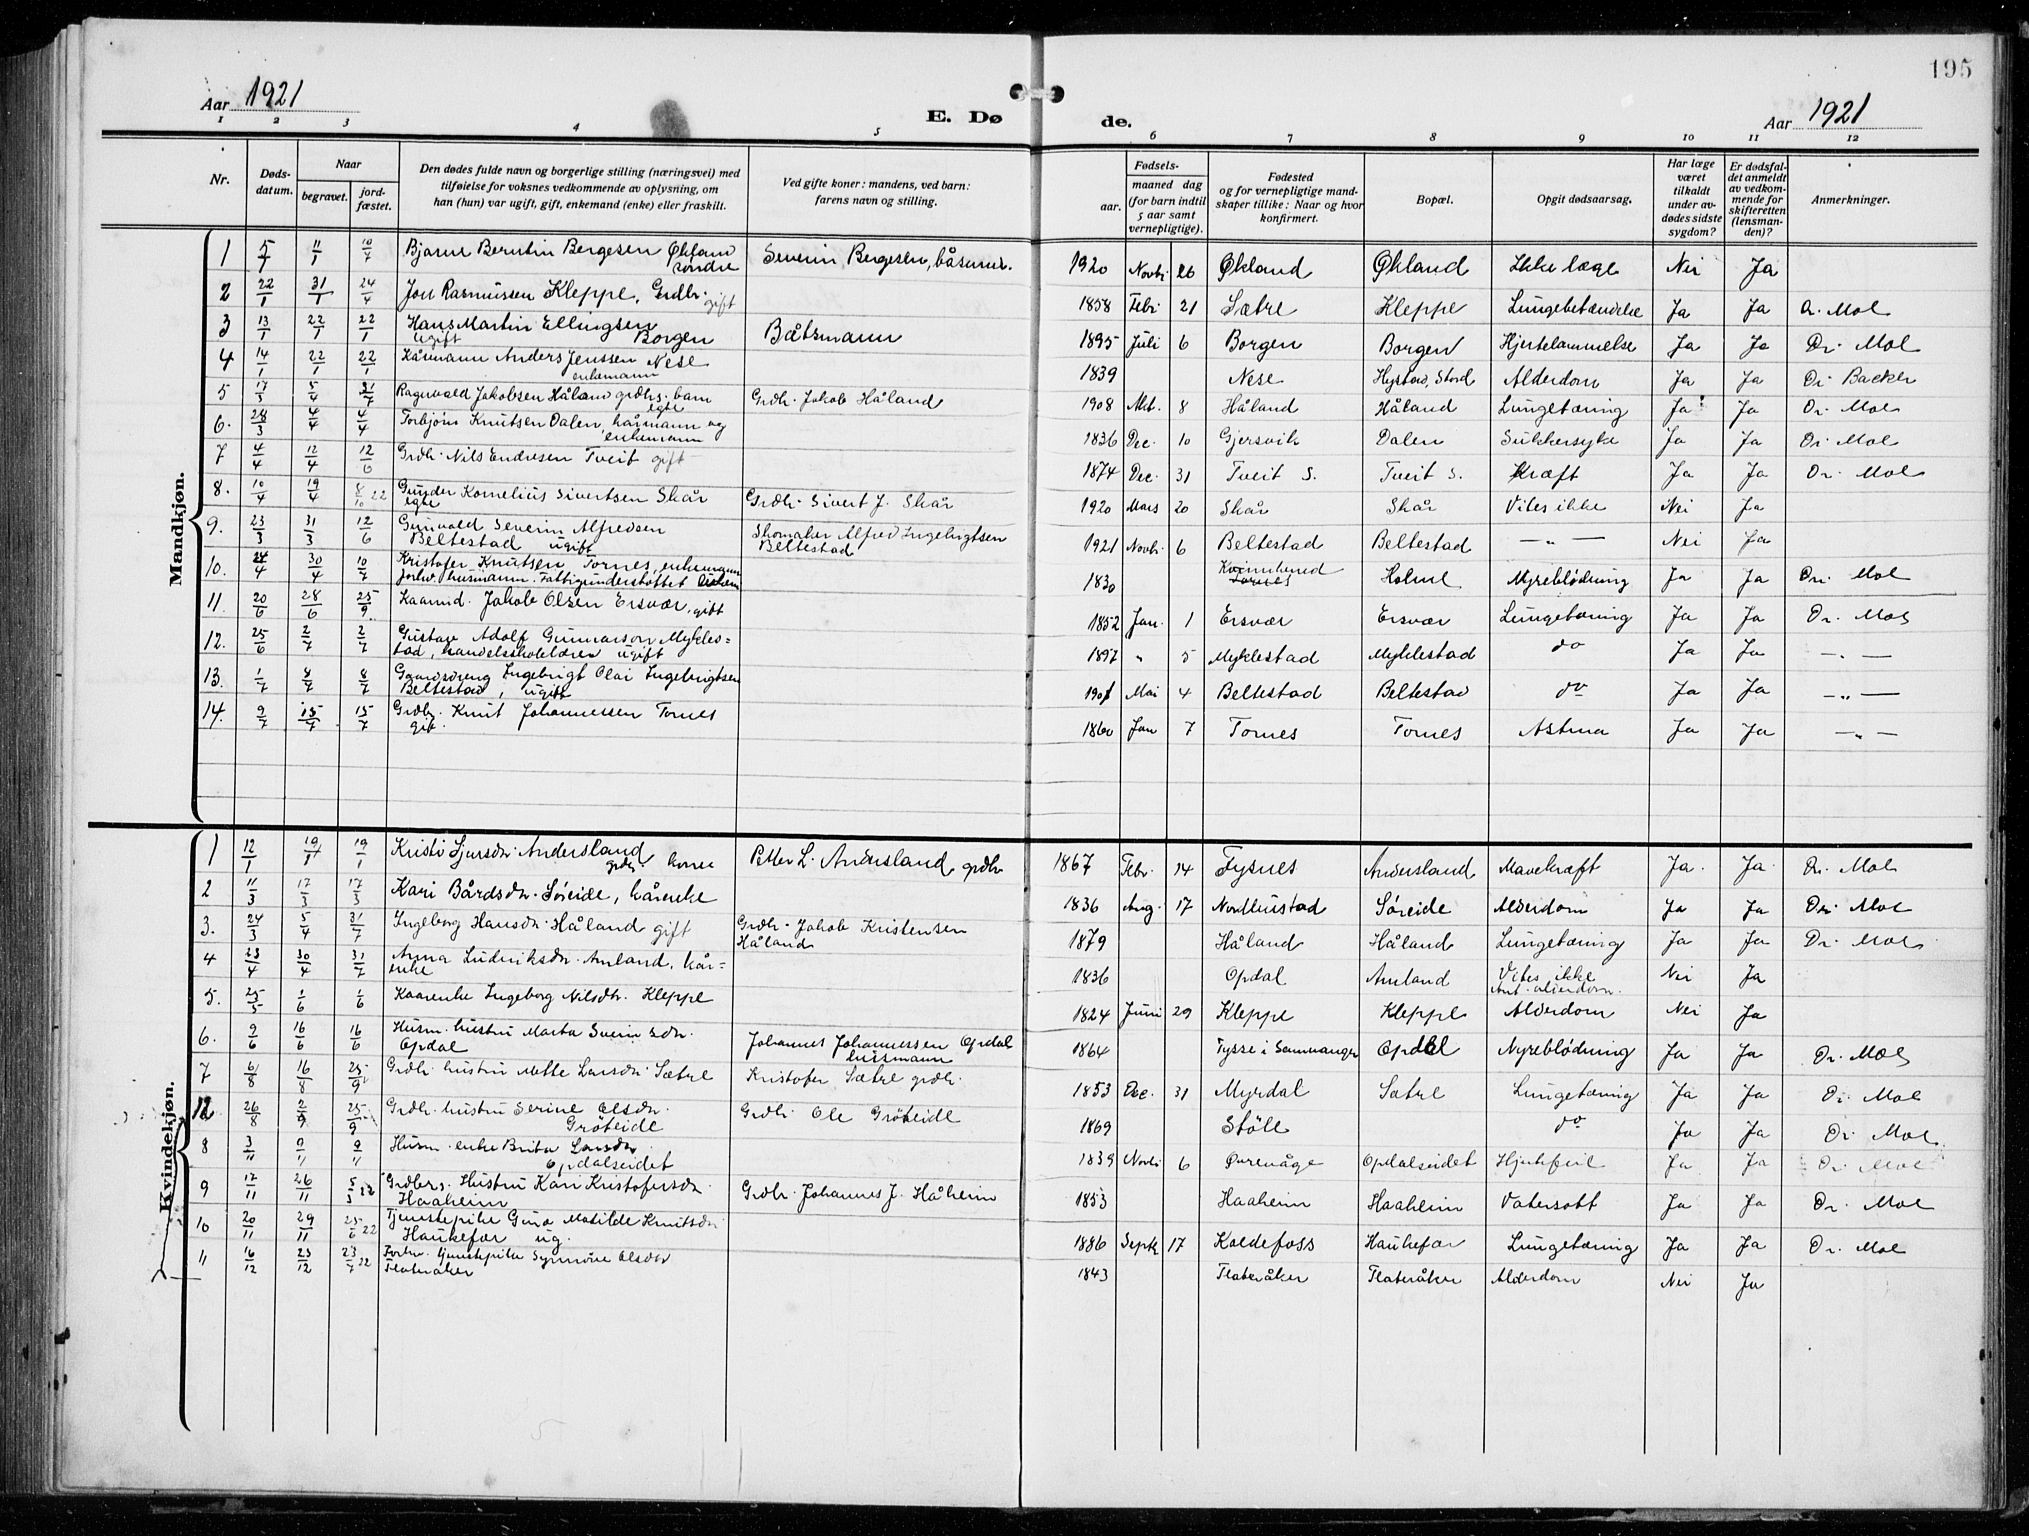 195
Aar 1921
E. Dø
de.
Aar 1921
1 2 3 4 5 6 7 8 9 10 11 12
Nr. Døds-datum. Naar begravet. jord-fæstet. Den dødes fulde navn og borgerlige stilling (næringsvei) med tilføielse for voksnes vedkommende av oplysning, om han (hun) var ugift, gift, enkemand (enke) eller fraskilt. Ved gifte koner: mandens, ved barn: farens navn og stilling. Fødsels- aar. maaned dag (for barn indtil 5 aar samt vernepligtige). Fødested og for vernepligtige mand-skaper tillike: Naar og hvor konfirmert. Bopæl. Opgit dødsaarsag. Har læge været tilkaldt under av-dødes sidste sygdom? Er dødsfal-det anmeldt av vedkom-mende for skifteretten (lensman-den)? Anmerkninger.
Mandkjøn.
1 5/1 11/1 10/4 Bjarne Berntin Bergesen Økland søndre Severin Bergesen, båsmn. 1920 Novbr 26 Økland Økland Ikke læge Nei Ja
2 22/1 31/1 24/4 Jon Rasmussen Kleppe, Grdbr. gift 1858 Febr 21 Sætre Kleppe Lungebetændelse Ja Ja Dr. Mol
3 13/1 22/1 22/1 Hans Martin Ellingsen Borgen ugift Båtsmann 1895 Juli 6 Borgen Borgen Hjertelammelse Ja Ja Dr. Mol
4 14/1 22/1 22/1 Kårmann Anders Jenssen Nese enkemann 1839 Nese Hystad, Stord Alderdom Ja Ja Dr Backer
5 17/3 5/4 31/7 Ragnvald Jakobsen Håland grdbrs. barn egte Grdbr. Jakob Håland 1908 Okt. 8 Håland Håland Lungetæring Ja Ja Dr. Mol
6. 28/3 4/4 4/4 Torbjørn Knutsen Dalen, kårmann og enkemann 1836 Dec. 10 Gjersvik Dalen Sukkersyke Ja Ja Dr Mol
7 4/4 12/4 12/6 Grdbr. Nils Endresen Tveit gift 1874 Dec. 31 Tveit S. Tveit S. Kræft Ja Ja Dr. Mol
8. 10/4 19/4 8/10 22 Gunder Kornelius Sivertsen Skår egte Grdbr. Sivert J. Skår 1920 Mars 20 Skår Skår Vites ikke Nei Ja
9. 23/3 31/3 12/6 Gunvald Severin Alfredsen Beltestad ugift Skomaker Alfred Ingebrigtsen Beltestad 1921 Novbr 6 Beltestad Beltestad — „ — Nei Ja
10. 24/4 30/4 10/7 Kristofer Knutsen Tornes, enkemann forhv. husmann. Fattigunderstøttet 1830 Kvinnherad Tornes Holme Nyreblødning Ja Ja Dr. Mol
11. 20/6 28/6 25/9. Kaarmd. Jakob Olsen Ersvær, gift 1852 Jan. 1 Ersvær Ersvær Lungetæring Ja Ja Dr. Mol
12. 25/6 2/7 2/7 Gustav Adolf Gunnarson Mykles=tad, handelsskolelærer ugift 1897 „ 5 Myklestad Myklestad do Ja Ja — „ —
13. 1/7 8/7 8/7 Gaardsdreng Ingebrigt Olai Ingebrigtsen Beltestad, ugift 1901 Mai 4 Beltestad Beltestad do Ja Ja — „ —
14. 9/7 15/7 15/7 Grdbr. Knut Johannessen Tornes gift. 1860 Jan 7 Tornes Tornes Astma Ja Ja — „ —
Kvindekjøn.
1 12/1 19/1 19/1 Kristi Sjursdtr. Andersland grdbr. kone Petter L. Andersland, grdbr 1867 Febr. 14 Tysnes Andersland Mavekræft Ja Ja Dr. Mol
2 11/3 17/3 17/3 Kari Bårdsdtr. Søreide, kårenke 1836 Aug. 17 Northustad Søreide Alderdom Ja Ja Dr. Mol
3. 24/3 5/4 31/7 Ingeborg Hansdtr. Håland gift Grdbr. Jakob Kristensen Håland 1879 Håland Håland Lungetæring Ja Ja Dr. Mol
4 23/4 30/4 31/7 Anna Ludriksdtr. Amland, kår=enke 1836 Opdal Amland Vites ikke Ant. alderdom. Nei Ja
5. 25/5 1/6 1/6 Kaarenke Ingeborg Nilsdtr. Kleppe 1824 Juni 29 Kleppe Kleppe Alderdom Nei Ja
6. 9/6 16/6 16/6 Husm. hustru Marta Sveinsdtr. Opdal Johannes Johannessen Opdal husmann 1864 Tysse i Samnanger Opdal Nyreblødning Ja Ja Dr. Mol
7 6/8 16/8 25/9 Grdbr. hustru Mette Larsdtr. Sætre Kristofer Sætre grdbr. 1853 Dec. 31 Myrdal Sætre Lungetæring Ja Ja Dr. Mol
12. 26/8 2/9 25/9 Grdbr. hustru Serine Olsdtr. Grøteide Grdbr. Ole Grøteide 1869 Støle do Ja Ja Dr. Mol
8 3/11 9/11 9/11 Husm. enke Brita Larsdtr Opdalseidet 1839 Novbr 6 Ørevåge Opdalseidet Hjertefeil Ja Ja Dr. Mol
9 17/11 26/11 5/3 22 Grdbrs. Hustru Kari Kristofersdtr. Haaheim Grdbr. Johannes J. Håheim 1853 Haaheim Haaheim Vatersott Ja Ja Dr. Mol
10 20/11 29/11 25/6 22 Tjenestepike Gina Matilde Knutsdtr Haukefær ug. 1886 Septr 17 Koldefoss Haukefær Lungetæring Ja Ja Dr. Mol
11 16/12 23/12 23/7 22 Forhv. tjenestepike Synnøve Olsdtr Flateråker 1843 Flateråker Flateråker Alderdom Nei Ja